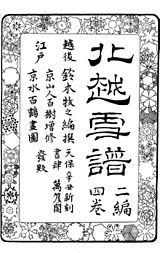 北越雪譜
二編
四巻
越後 鈴木牧之編撰
京山人百樹増修
江戸 京水百鶴畫圖
天保辛丑新刻
書肆 萬笈閣
發販